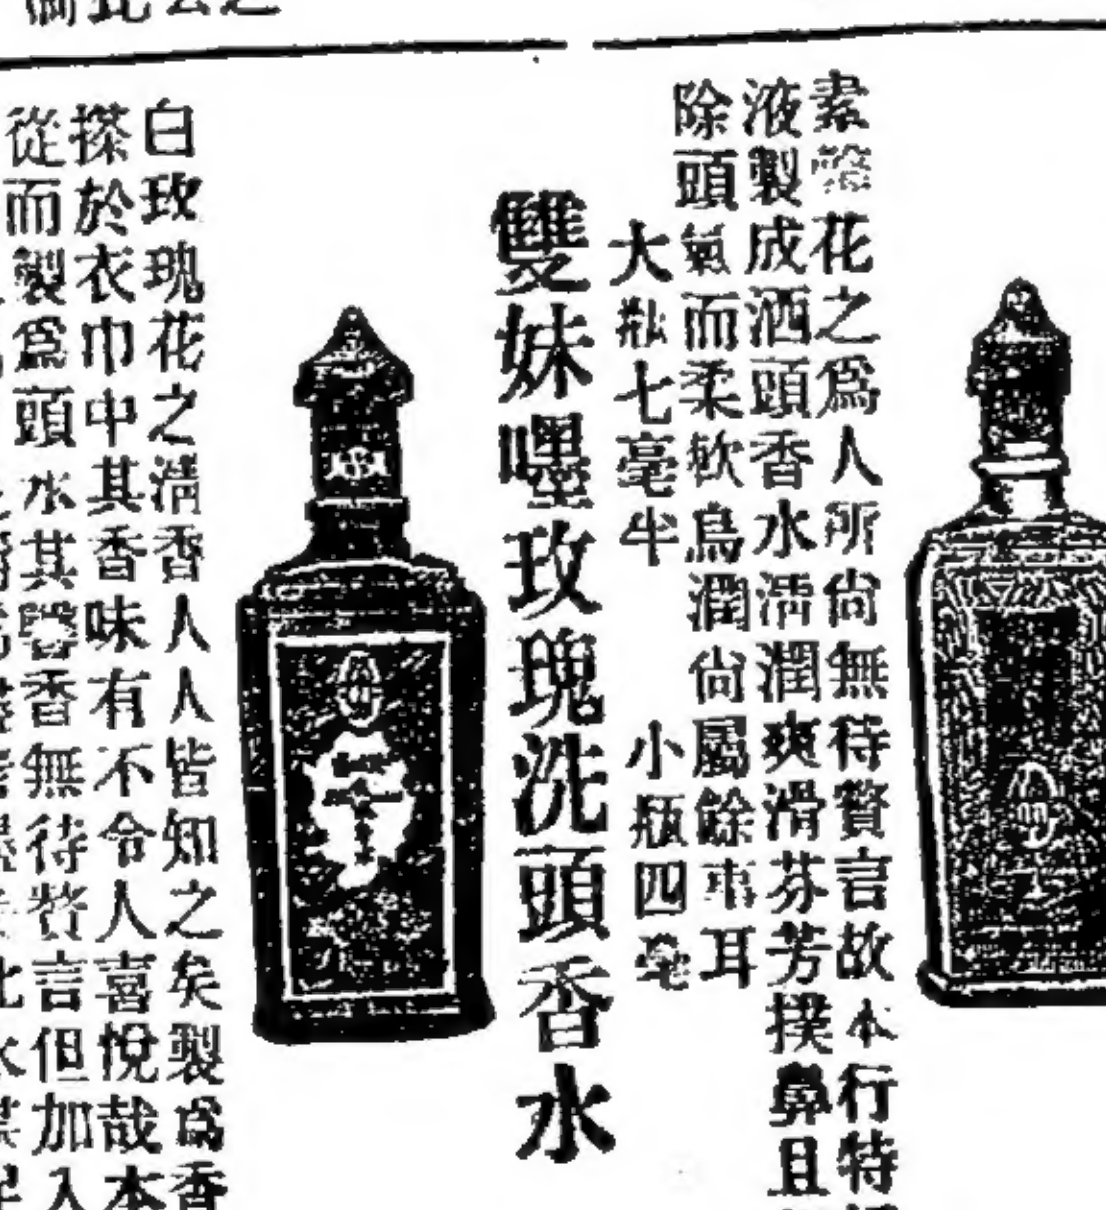 素馨花之爲人所尙無待贅言故本行特
液製成洒頭香水淸潤爽滑芬芳撲鼻且
除頭氣而柔軟烏潤尙屬餘事耳
大瓶七毫半 小瓶四毫
雙妹嘿玫瑰洗頭香水
白玫瑰花之淸香人人皆知之矣製爲香
搽於衣巾中其香味有不令人喜悅哉本
從而製爲頭水其馨香無待贅言但加入